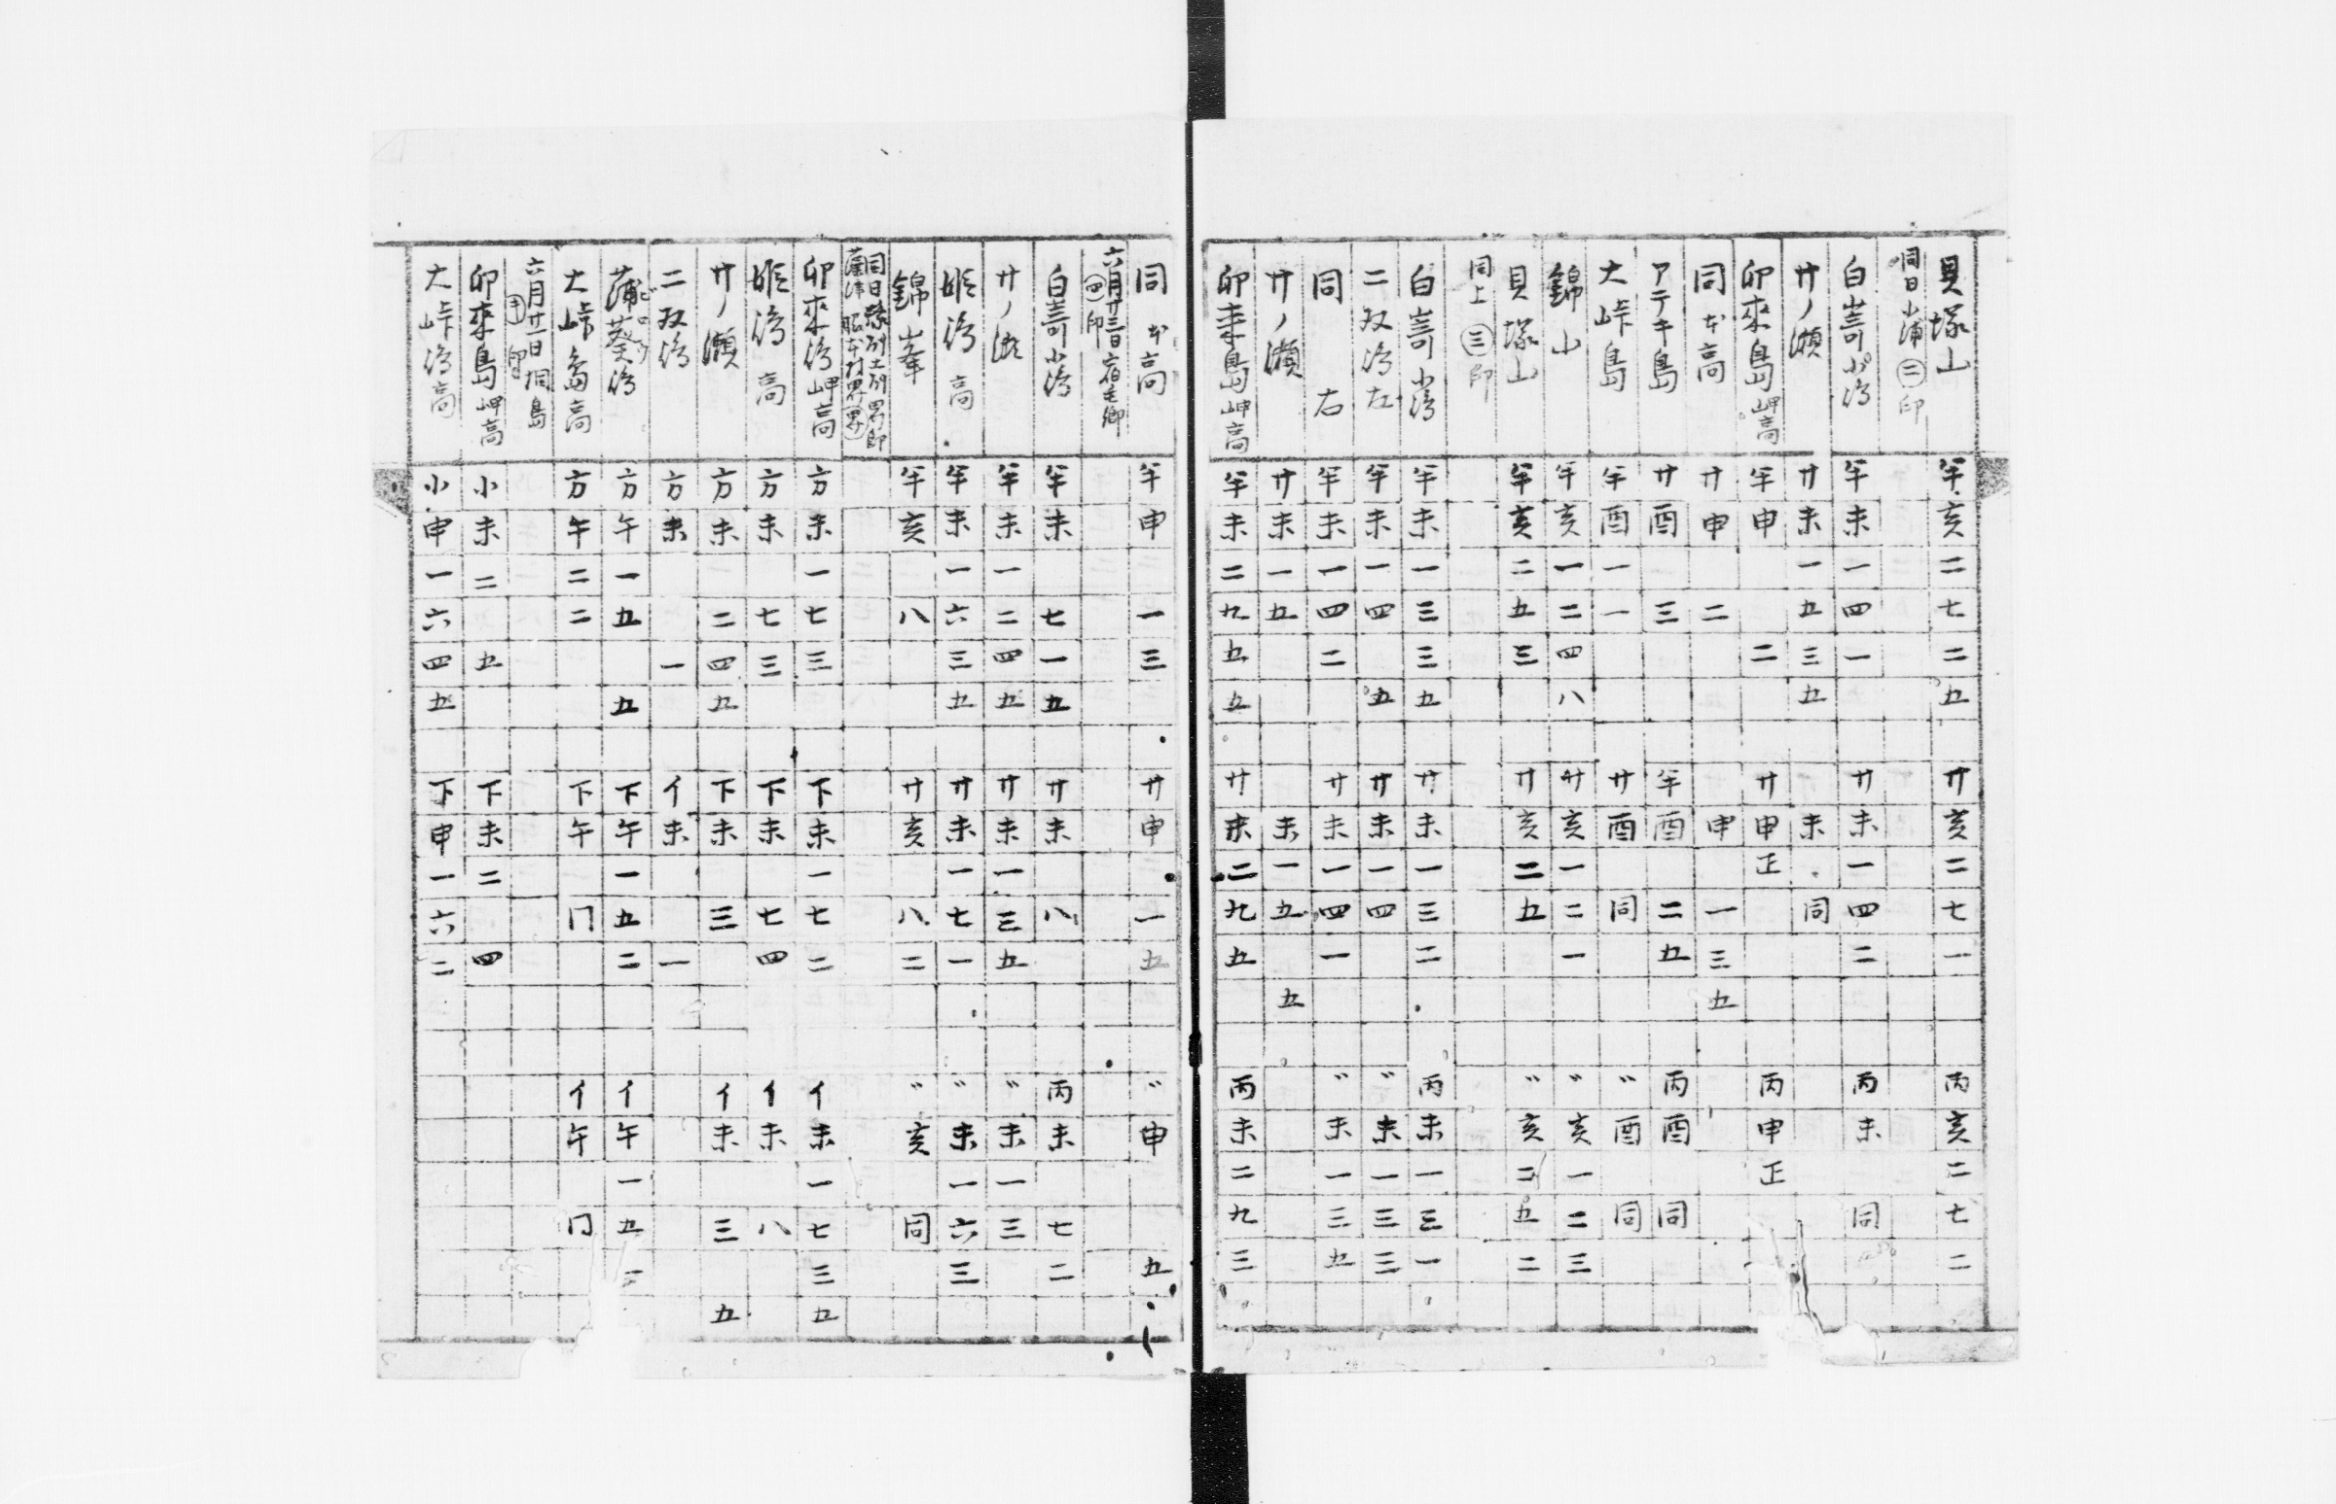 貝塚山 半亥二七二五 廿亥二七一 丙亥二七二
同日小浦㊁印
白嵜小湾 半未一四一 廿未一四二 丙未同
廿ノ瀬 廿未一五三五 未同
卯來島岬高 半申二 廿申正 丙申正
同本高 廿申二 申一三五
アテキ島 廿酉三 半酉二五 丙酉同
大峠島 半酉一一 廿酉同 〃酉同
錦山 半亥一二四八 廿亥一二一 〃亥一二三
貝塚山 半亥二五三 廿亥二五 〃亥二五二
同上㊂印
白嵜小湾 半未一三三五 廿未一三二 丙未一三一
二双湾左 半未一四五 廿未一四 〃未一三三
同右 半未一四二 廿未一四一 〃未一三五
廿ノ瀬 廿未一五 未一五五
卯来島岬高 半未二九五五 廿未二九五 丙未二九三
同本高 半申一三 廿申一五 〃申五
六月廿三日宿毛郷㊃印
白嵜小湾 半未七一五 廿未八 丙未七二
廿ノ瀬 半未一二四五 廿未一三五 〃未一三
姫湾高 半未一六三五 廿未一七一 〃未一六三
錦峯 半亥八 廿亥八二 〃亥同
同日
卯來湾岬高 方未一七三 下未一七二 イ未一七三五
姫湾高 方未七三 下未七四 イ未八
廿ノ瀬 方未二四五 下未三 イ未三五
二双湾 方未一 イ未一
蒲葵湾 方午一五五 下午一五二 イ午一五
大峠島高 方午二二 下午门 イ午门
六月廿一日桐島㊉印
卯來島岬高 小未二五 下未二四
大峠湾高 小申一六四五 下申一六二